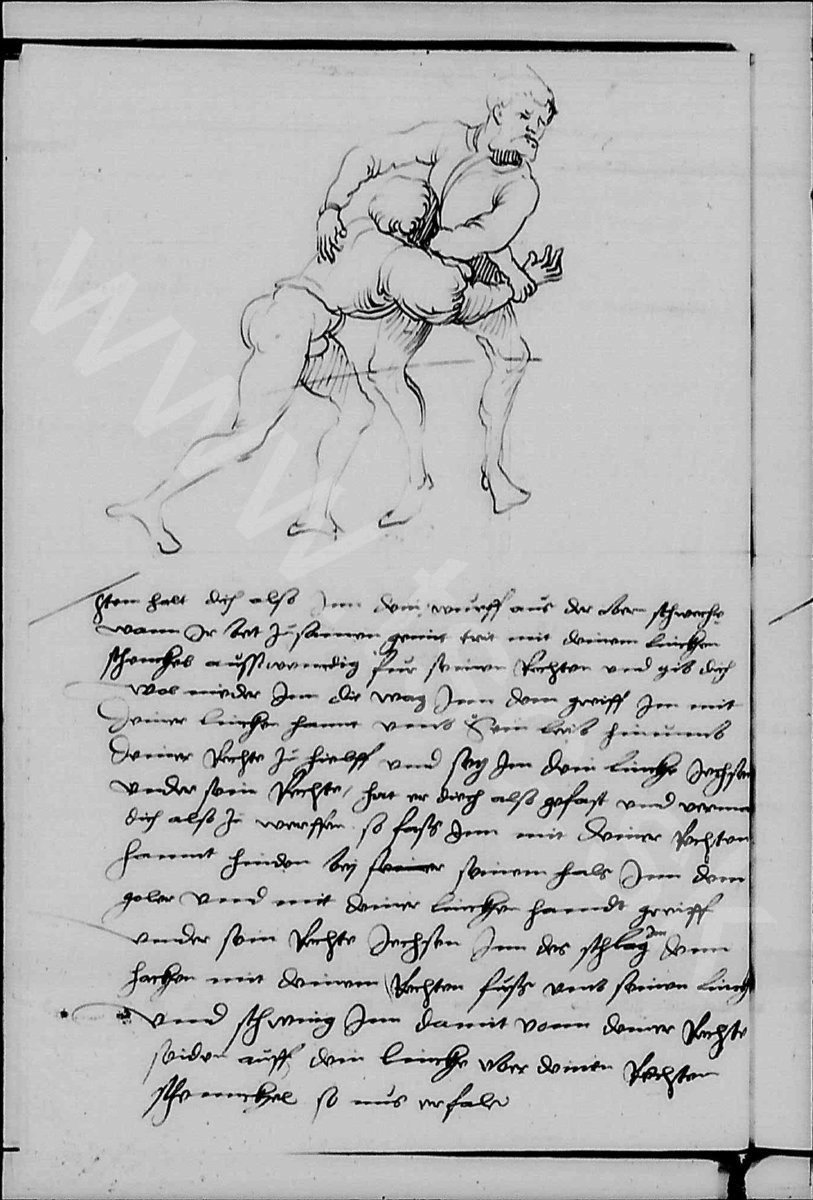 Item halt dich also Inn dem wurff aus der obern schweche
wann Ir bet zusamen geent trit mit deinem lincken
schenckel ausswendig fur seinen Rechten und gib dich
wol nieder Inn die wag Inn dem greiff Im mit
deiner lincken hannt umb Sein leib hinumb
deiner Rechte zu hielff und sey Im dein lincke Jechsen
under sein Rechte, hat er dich also gefast und verma
dich also zu werffen so fass Inn mit deiner Rechten
hannt hinden bey seiner seinem hals Inn dem
goler und mit deiner lincken handt greiff
under sein Rechte Jechsen Inn des schlag Im dein
hacken mit deinem Rechten fuss umb seinen linck
und schwing Inn damit vonn deiner Rechte
seiden auff dein lincke uber deinen Rechten
schennckel so mus er fale
www.